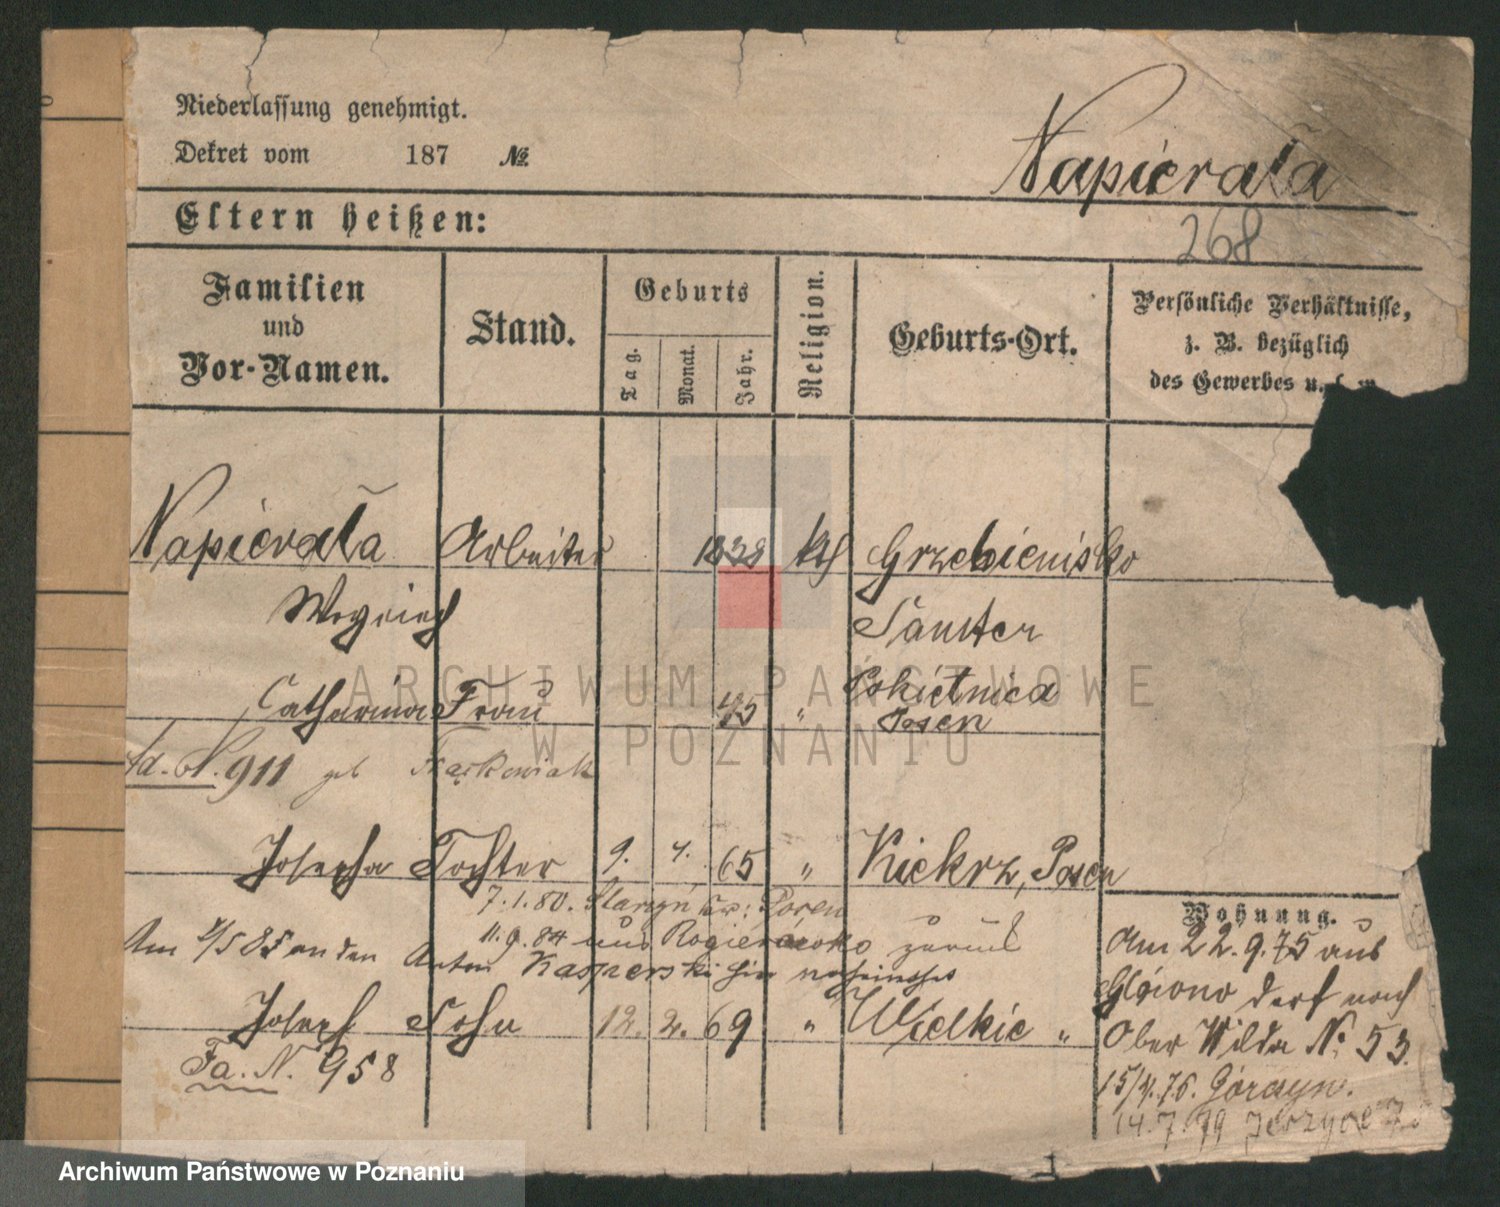 Niederlassung genehmigt.
Dekret vom 187 №
Napierała
268
Eltern heißen:
Familien und Vor-Namen.
Stand.
Geburts
Tag. Monat. Jahr.
Religion.
Geburts-Ort.
Persönliche Verhältnisse,
z. B. bezüglich
des Gewerbes u.
Napierała Arbeiter 1838 kth Grzebienisko
Woyciech Samter
Catharina Frau 45 " Rokietnica
Posen
Ad. N. 911 geb Frąckowiak
Josepha Tochter 9. 4. 65 " Kiekrz, Posen
7.1.80. Posen
11.9.84 zurück
Am an den Anton Kasperski
Joseph Sohn 12. 2. 69 " Wielkie "
Fa. N. 958
Wohnung.
Am 22.9.75 aus
dorf nach
Ober Wilda N. 53.
15/4.76. Górczyn.
14.7.79 Jerzyce
ARCHIWUM PAŃSTWOWE
W POZNANIU
Archiwum Państwowe w Poznaniu